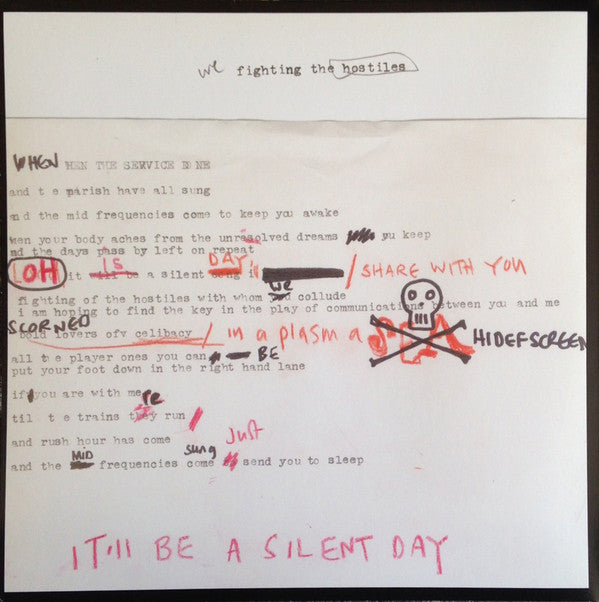 we fighting the hostiles
WHEN HEN THE SERVICE DONE
and t e parish have all sung
and the mid frequencies come to keep you awake
wen your body aches from the unresolved dreams you keep
and the days pass by left on repeat
LOH it is a silent DAY, / SHARE WITH YOU
fighting of the hostiles with whom we collude
i am hoping to find the key in the play of communication between you and me
SCORNED
bold lovers ofv celibacy / in a plasma HIDEFSCREEN
all the player ones you can BE
put your foot down in the right hand lane
if you are with me re
til t e trains they run /
and rush hour has come Just
and the MID frequencies come sung send you to sleep
IT'll BE A SILENT DAY